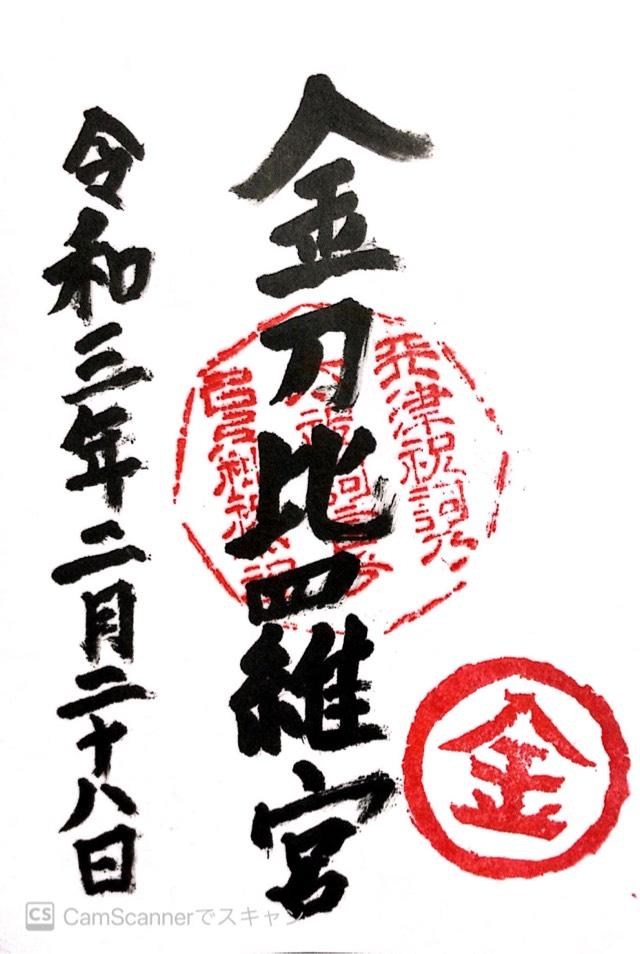 金刀比羅宮
令和三年二月二十八日
天津祝詞
金
CS CamScannerでスキャン